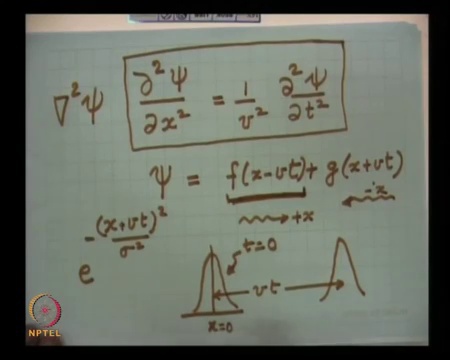 ∇²ψ ∂²ψ/∂x² = 1/v² ∂²ψ/∂t²
ψ = f(x-vt) + g(x+vt)
→+x ←-x
e^(-(x+vt)²/σ²)
t=0
vt
x=0
NPTEL